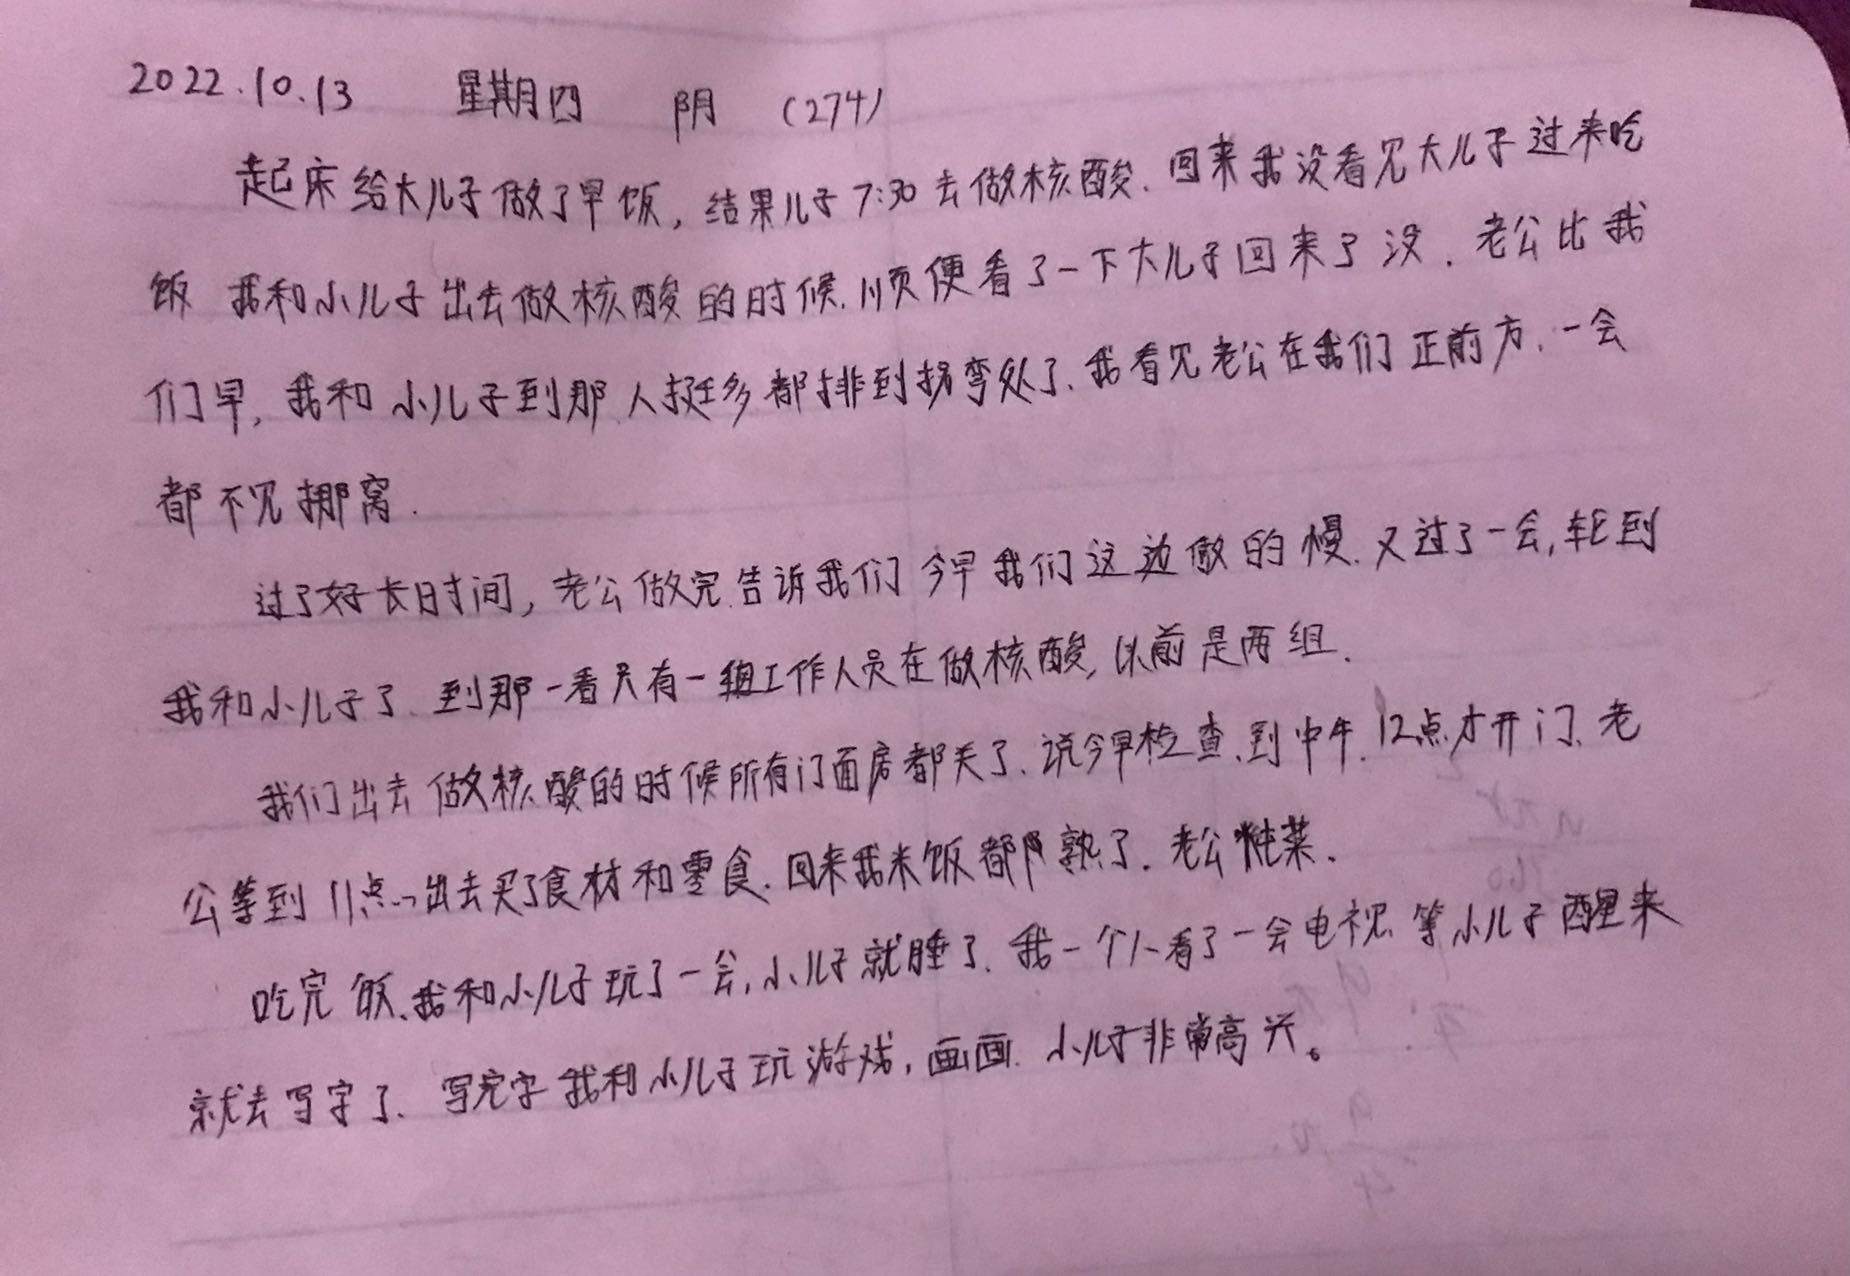 2022.10.13 星期四 阴 (274)
起床给大儿子做了早饭，结果儿子7:30去做核酸.回来我没看见大儿子过来吃
饭 我和小儿子出去做核酸的时候.顺便看了一下大儿子回来了没.老公比我
们早，我和小儿子到那人挺多都排到拐弯处了.我看见老公在我们正前方.一会
都不见挪窝.
过了好长时间，老公做完告诉我们今早我们这边做的慢.又过了一会，轮到
我和小儿子了.到那一看只有一组工作人员在做核酸，以前是两组.
我们出去做核酸的时候所有门面房都关了.说今早检查.到中午12点才开门.老
公等到11点..出去买了食材和零食.回来我米饭都熟了.老公炖菜.
吃完饭.我和小儿子玩了一会，小儿子就睡了.我一个人看了一会电视.等小儿子醒来
就去写字了.写完字我和小儿子玩游戏，画画.小儿子非常高兴。